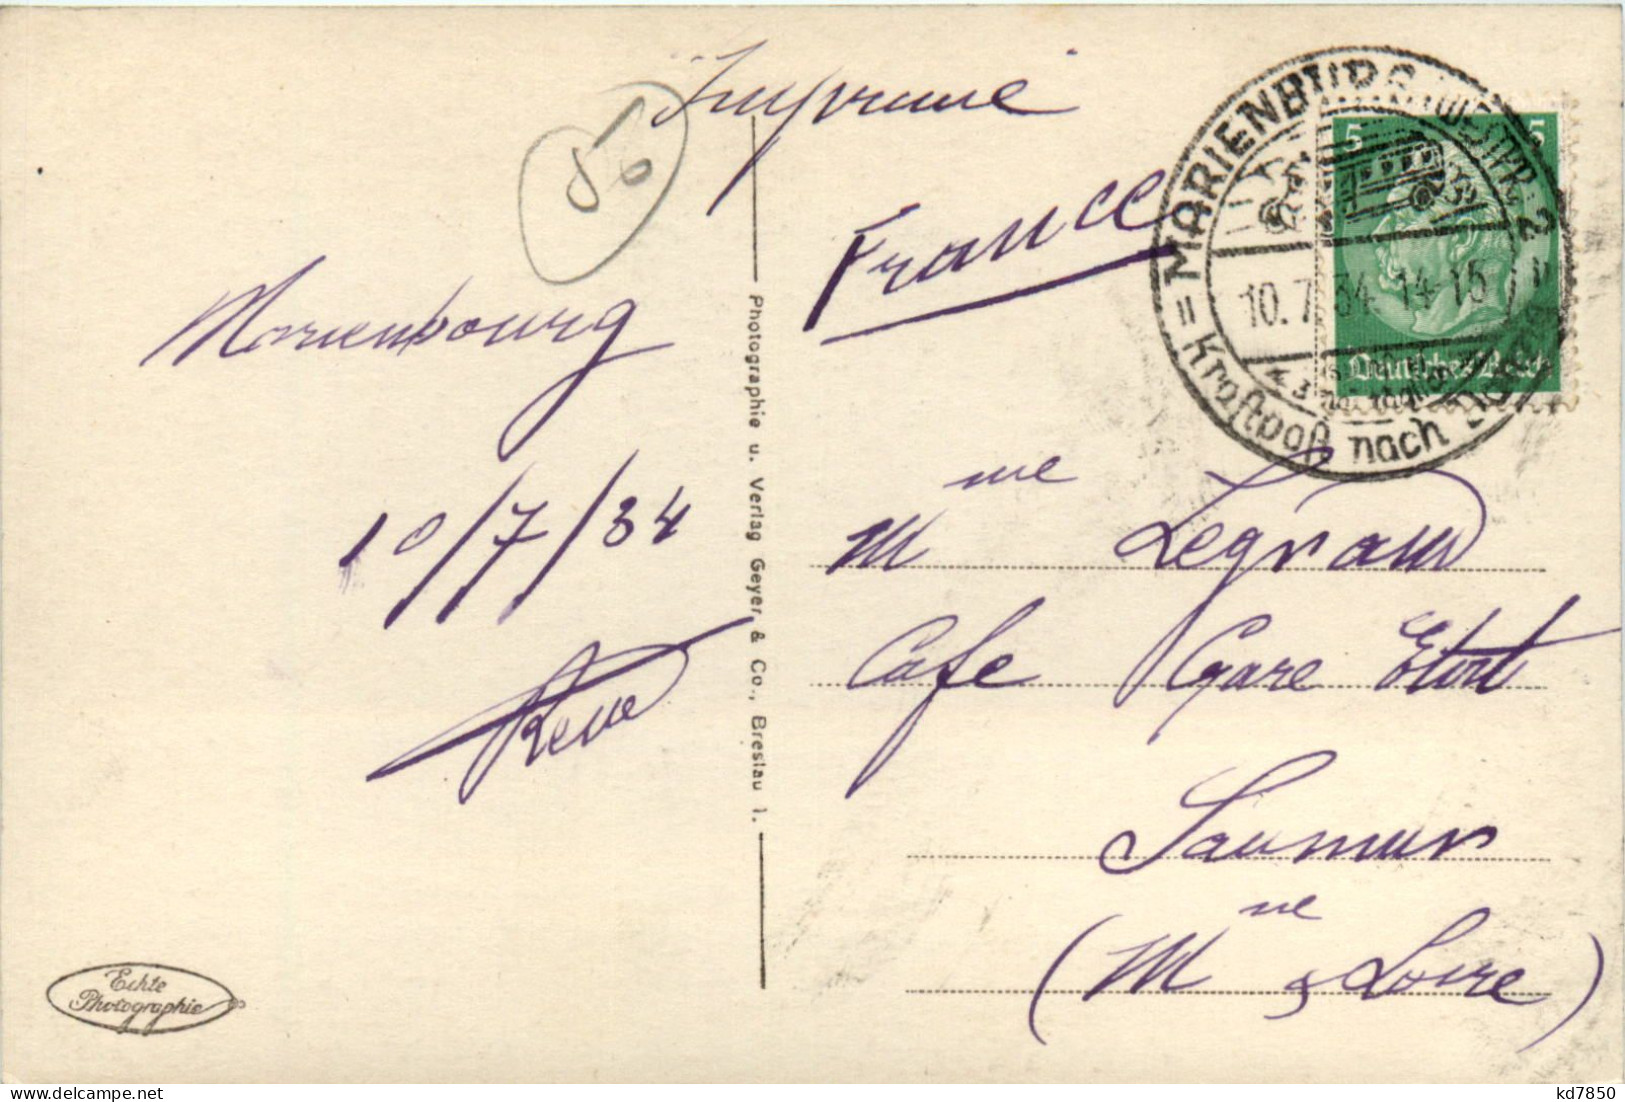 Imprimé
56
France
MARIENBURG (WESTPR.) 2
10.7.34 14-15
3 mal täglich
Kraftpost nach
5 5
Deutsches Reich
Marienbourg
10/7/34
René
Photographie u. Verlag Geyer & Co., Breslau 1.
Mme Legrand
Café Gare Etat
Saumur
(Mne & Loire)
Echte
Photographie
delcampe.net
kd7850